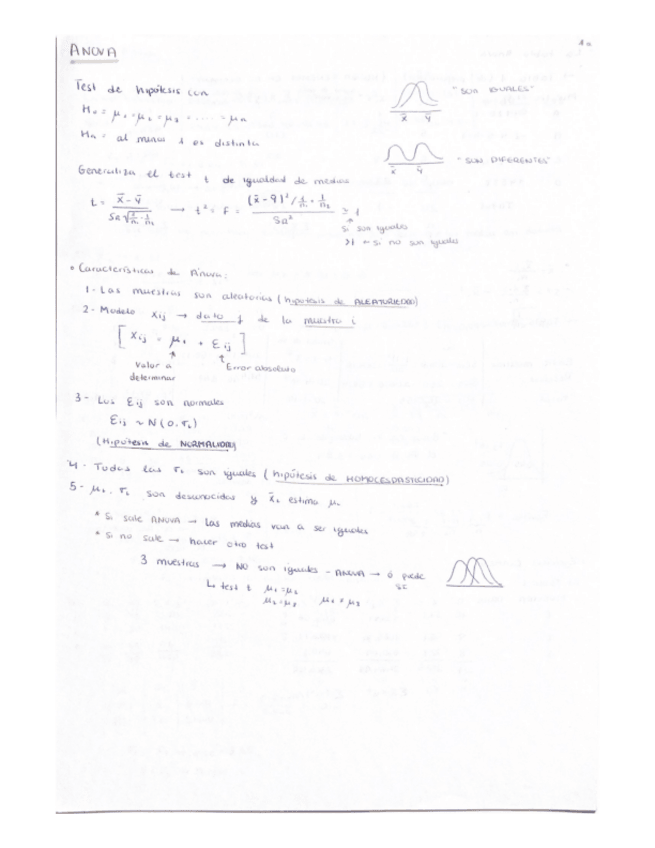 ANOVA
Test de hipótesis con
H₀ = μ₁ = μ₂ = μ₃ = ...... = μₙ
Hₐ = al menos 1 es distinta
x̄ ȳ
"SON IGUALES"
x̄ ȳ
"SON DIFERENTES"
Generaliza el test t de igualdad de medias
Si son iguales
>1 ← Si no son iguales
• Características de Anova:
1- Las muestras son aleatorias (hipótesis de ALEATORIEDAD)
2- Modelo Xij → dato j de la muestra i
[ Xij = μi + Eij ]
Valor a determinar
Error absoluto
3- Los Eij son normales
Eij ~ N(0, σi)
(Hipótesis de NORMALIDAD)
4- Todas las σi son iguales (hipótesis de HOMOCEDASTICIDAD)
5- μi, σi son desconocidas y x̄i estima μi
* Si sale ANOVA → Las medias van a ser iguales
* Si no sale → hacer otro test
3 muestras → NO son iguales - ANOVA → o puede
ser
↳ test t μ₁ = μ₂
μ₂ = μ₃ μ₁ = μ₃